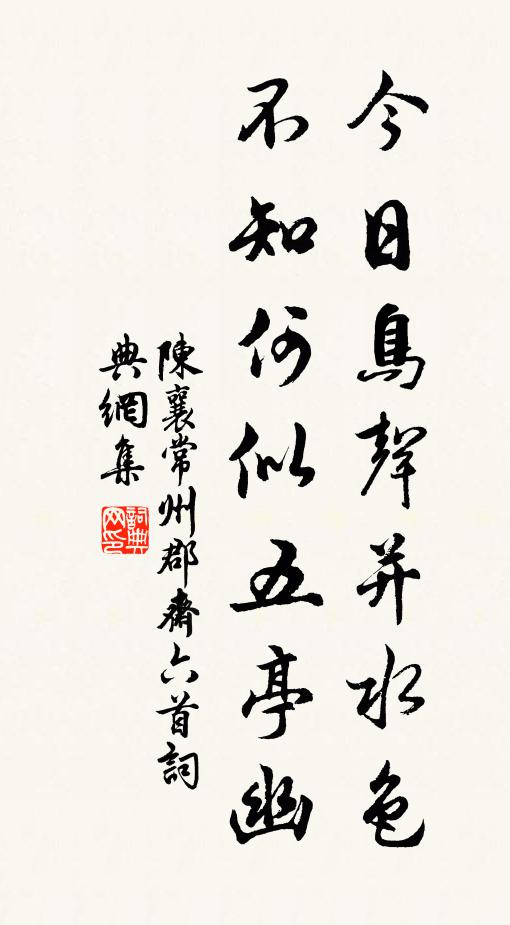 今日鳥聲并水色
不知何似五亭幽
陳襄常州郡齋六首詞
典網集
詞典网印